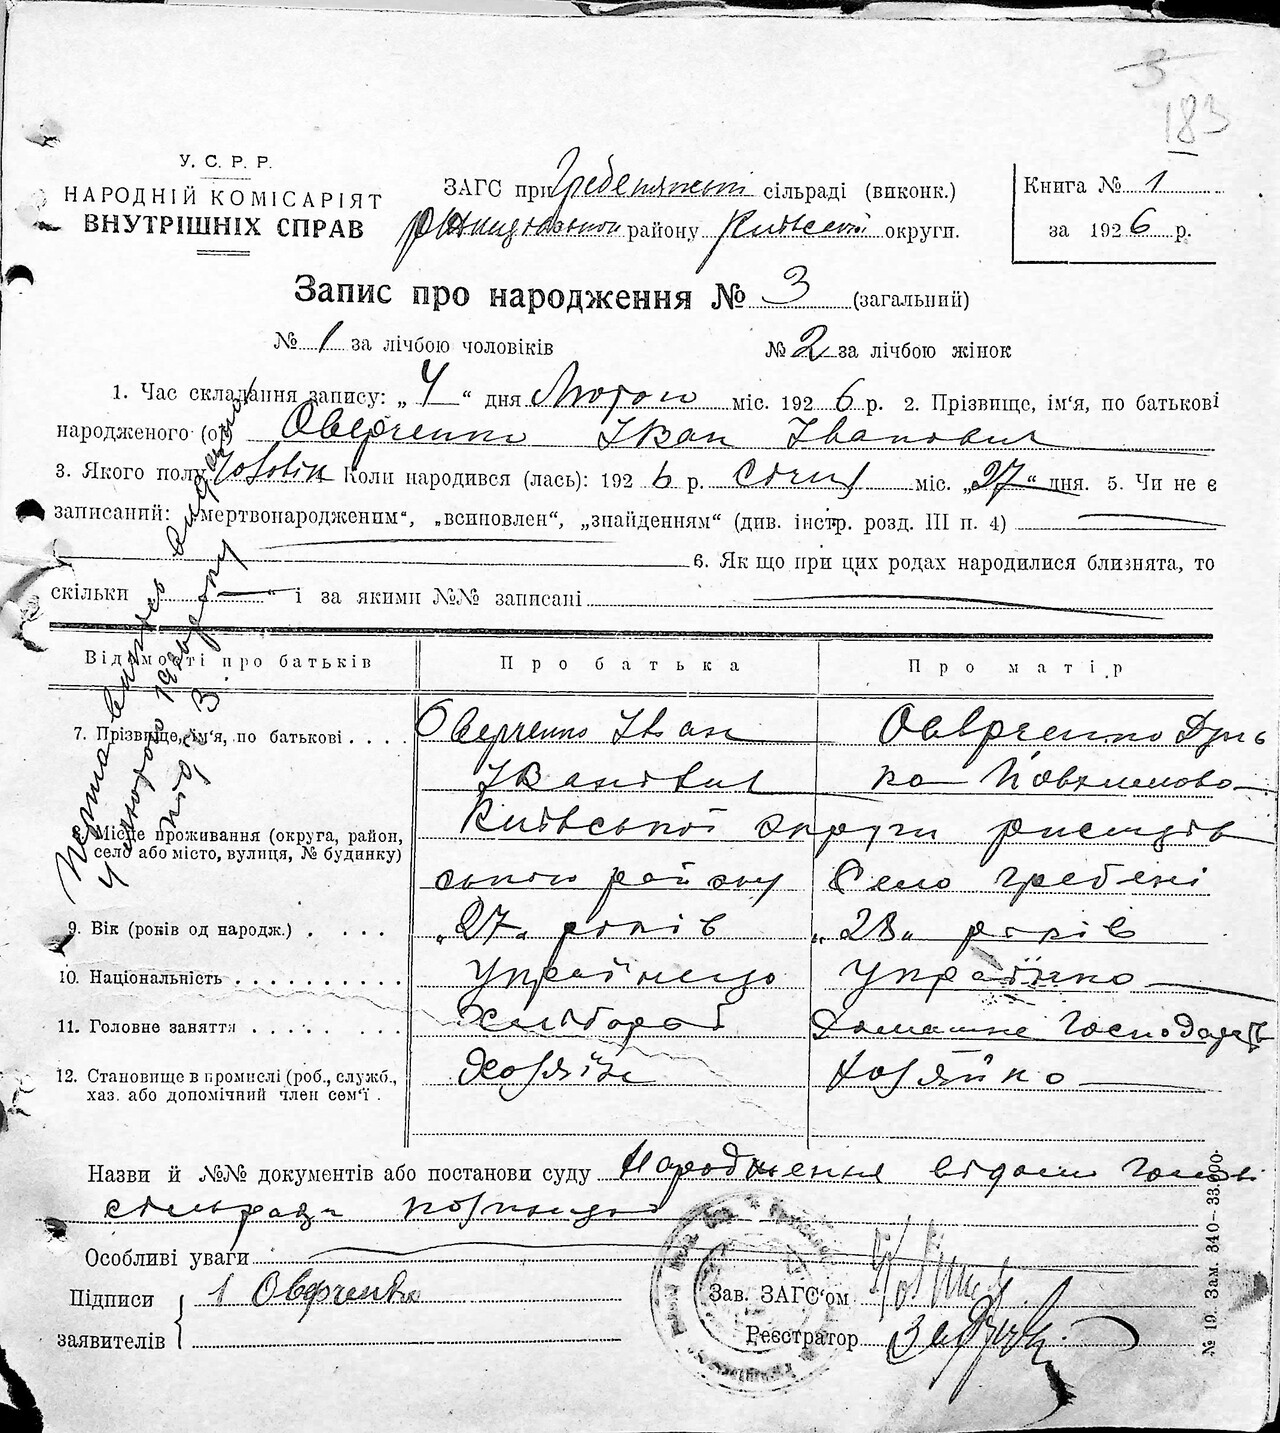 3
183
У. С. Р. Р.
НАРОДНІЙ КОМІСАРІЯТ
ВНУТРІШНІХ СПРАВ
ЗАГС при Гребенянскій сільраді (виконк.)
району Київської округи.
Книга № 1
за 1926 р.
Запис про народження № 3 (загальний)
№ 1 за лічбою чоловіків
№ 2 за лічбою жінок
1. Час складання запису: „ 4 “ дня Лютого міс. 1926 р. 2. Прізвище, ім‘я, по батькові
народженого (ої) Оверченко Іван Іванович
3. Якого полу Коли народився (лась): 1926 р. Січня міс. „27“ дня. 5. Чи не є
записаний: „мертвонародженим“, „всиновлен“, „знайденням“ (див. інстр. розд. III п. 4)
6. Як що при цих родах народилися близнята, то
скільки „ — “ і за якими №№ записані
Відомості про батьків
Про батька
Про матір
7. Прізвище, ім‘я, по батькові . . . .
Оверченко Іван
Іванович
Оверченко Дунь
ка
8. Місце проживання (округа, район,
село або місто, вулиця, № будинку)
Київської округи ржищів
ського району Село Гребені
9. Вік (років од народж.) . . . .
„27„ років
„28„ років
10. Національність . . . . . . . . . .
Українець
Українка
11. Головне заняття . . . . . . . . .
Хлібороб
Домашнє Господарств
12. Становище в промислі (роб., служб.,
хаз. або допомічний член сем‘ї .
Хозяїн
Хозяйка
Назви й №№ документів або постанови суду Народження відоме
сільради
Особливі уваги
Підписи
заявителів
1 Оверченко
Зав. ЗАГС‘ом
Реєстратор
№ 19. Зам. 340—33.000.